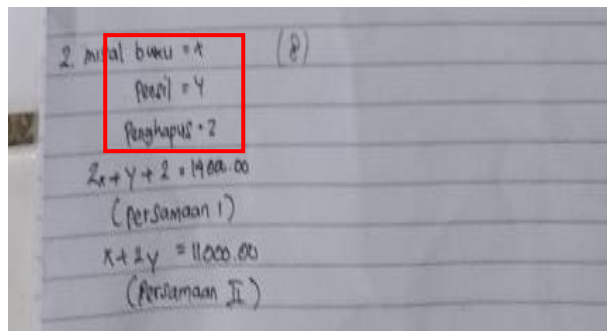 2. misal buku = x (8)
Pensil = y
Penghapus = z
2x + y + z = 14000.00
(Persamaan 1)
x + 2y = 11000.00
(Persamaan II)